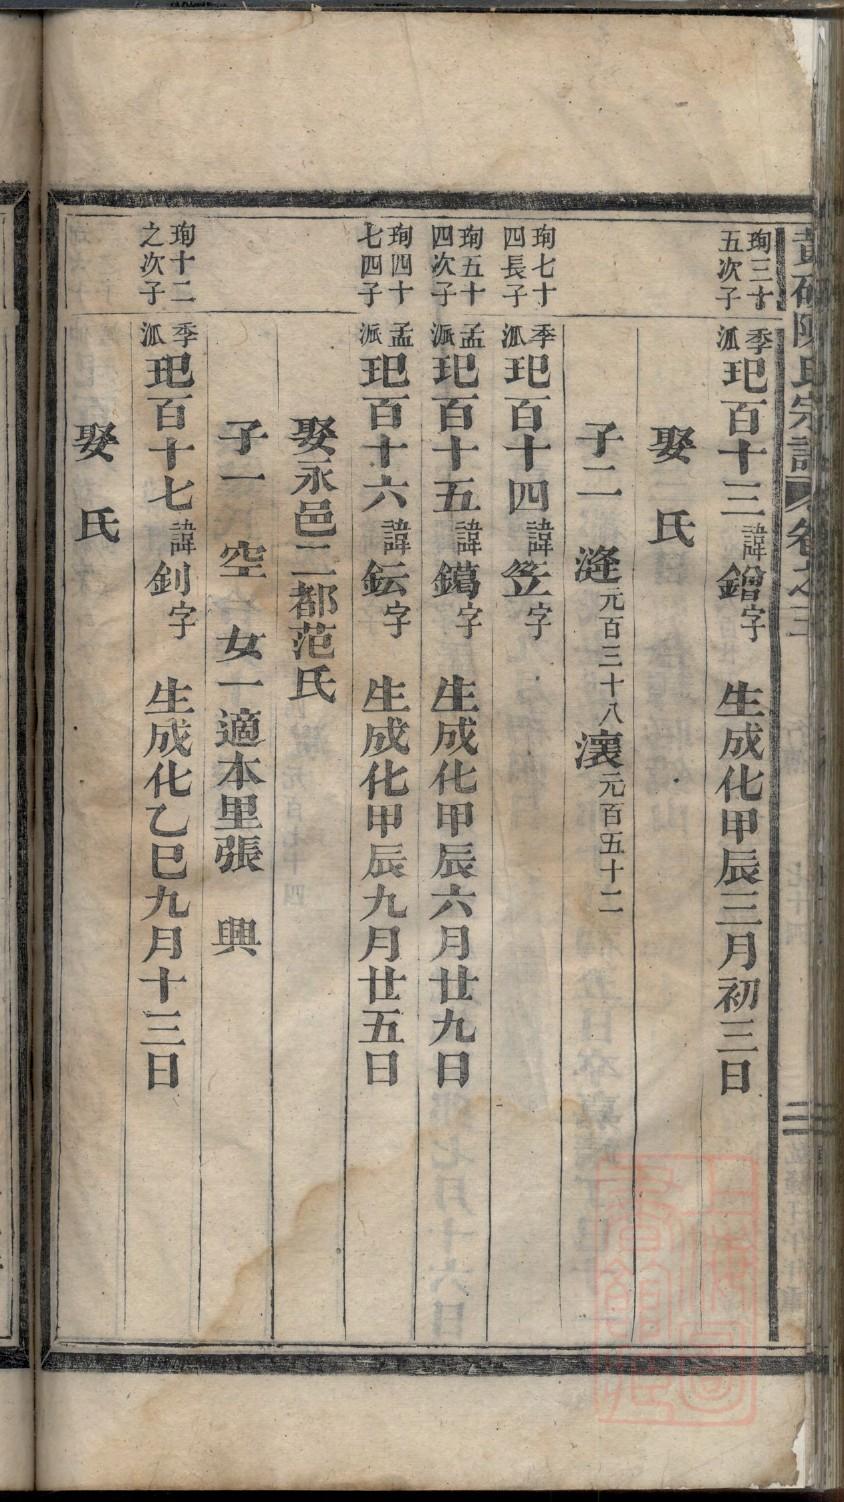 陳氏宗譜 卷之三
珣三十五次子
季派 玘百十三 諱鏳字 生成化甲辰三月初三日
娶 氏
子二 漨元百三十八 瀼元百五十二
珣七十四長子
季派 玘百十四 諱笠字
珣五十四次子
孟派 玘百十五 諱鐊字 生成化甲辰六月廿九日
珣四十七四子
孟派 玘百十六 諱鈜字 生成化甲辰九月廿五日
娶永邑二都范氏
子一 空 女一適本里張 興
珣十二之次子
季派 玘百十七 諱釗字 生成化乙巳九月十三日
娶 氏